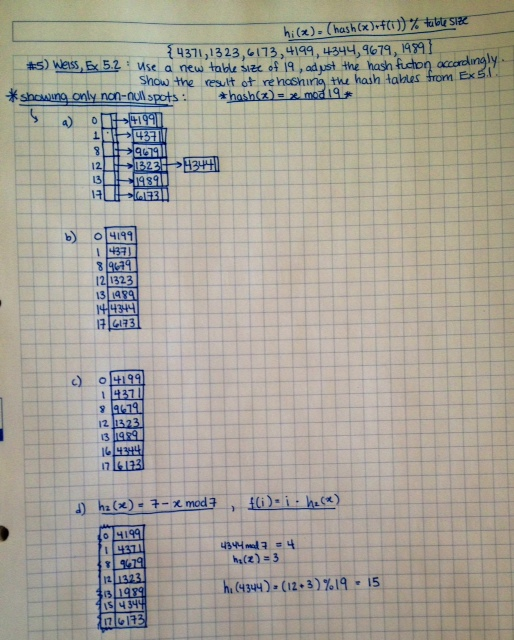 hi(x) = (hash(x)+f(i)) % table size
{4371,1323,6173,4199,4344,9679,1989}
#5) Weiss, Ex 5.2 : Use a new table size of 19, adjust the hash fuction accordingly.
Show the result of rehashing the hash tables from Ex 5.1.
* showing only non-null spots : * hash(x) = x mod 19 *
a) 0 → 4199
1 → 4371
8 → 9679
12 → 1323 → 4344
13 → 1989
17 → 6173
b) 0 4199
1 4371
8 9679
12 1323
13 1989
14 4344
17 6173
c) 0 4199
1 4371
8 9679
12 1323
13 1989
16 4344
17 6173
d) h₂(x) = 7 - x mod 7 , f(i) = i · h₂(x)
0 4199
1 4371
8 9679
12 1323
13 1989
15 4344
17 6173
4344 mod 7 = 4
h₂(x) = 3
h₁(4344) = (12+3) % 19 = 15